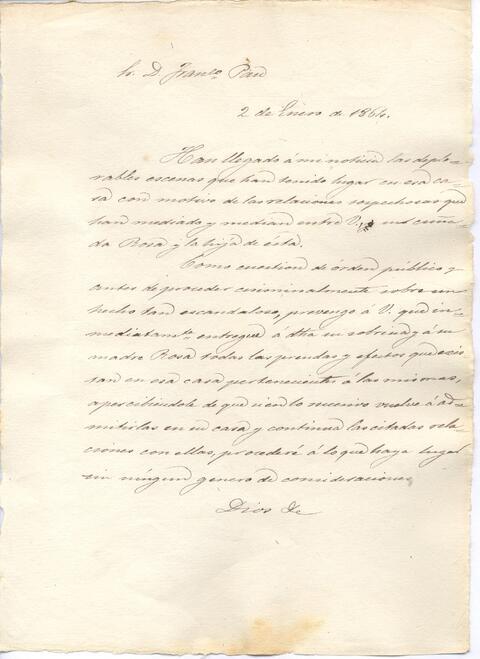 Sr. D. Franco. Pau
2 de Enero de 1864.
Han llegado á mi noticia las deplo-
rables escenas que han tenido lugar en esa ca-
sa con motivo de las relaciones sospechosas que
han mediado y median entre V. y su cuña-
da Rosa y la hija de ésta.
Como cuestion de órden público y
antes de proceder criminalmente sobre un
hecho tan escandaloso, prevengo á V. que in-
mediatamte. entregue á dha su sobrina y á su
madre Rosa todas las prendas y efectos que exis-
tan en esa casa pertenecientes á las mismas,
apercibiéndole de que si en lo sucesivo vuelve á ad-
mitirlas en su casa y continua las citadas rela-
ciones con ellas, procederé á lo que haya lugar
sin ningun genero de consideraciones
Dios &c